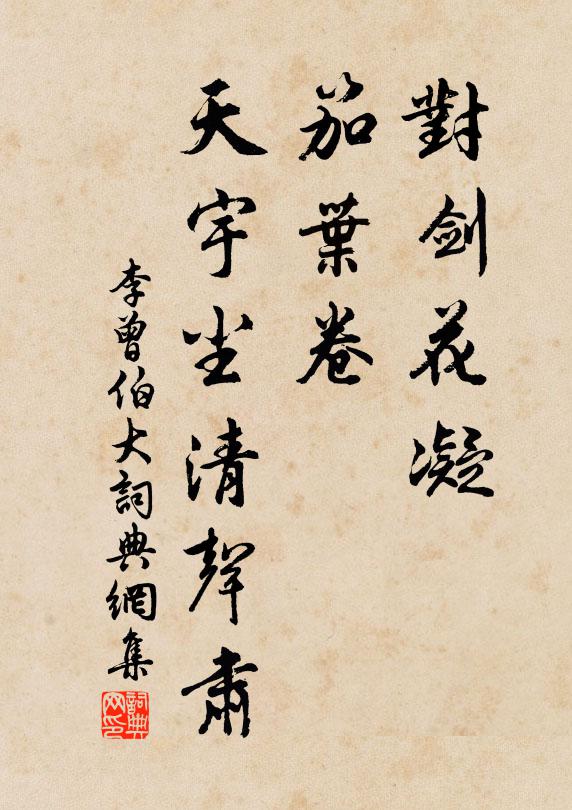 對劍花凝
笳葉卷
天宇尘清聲肅
李曾伯大詞典網集
詞典网印